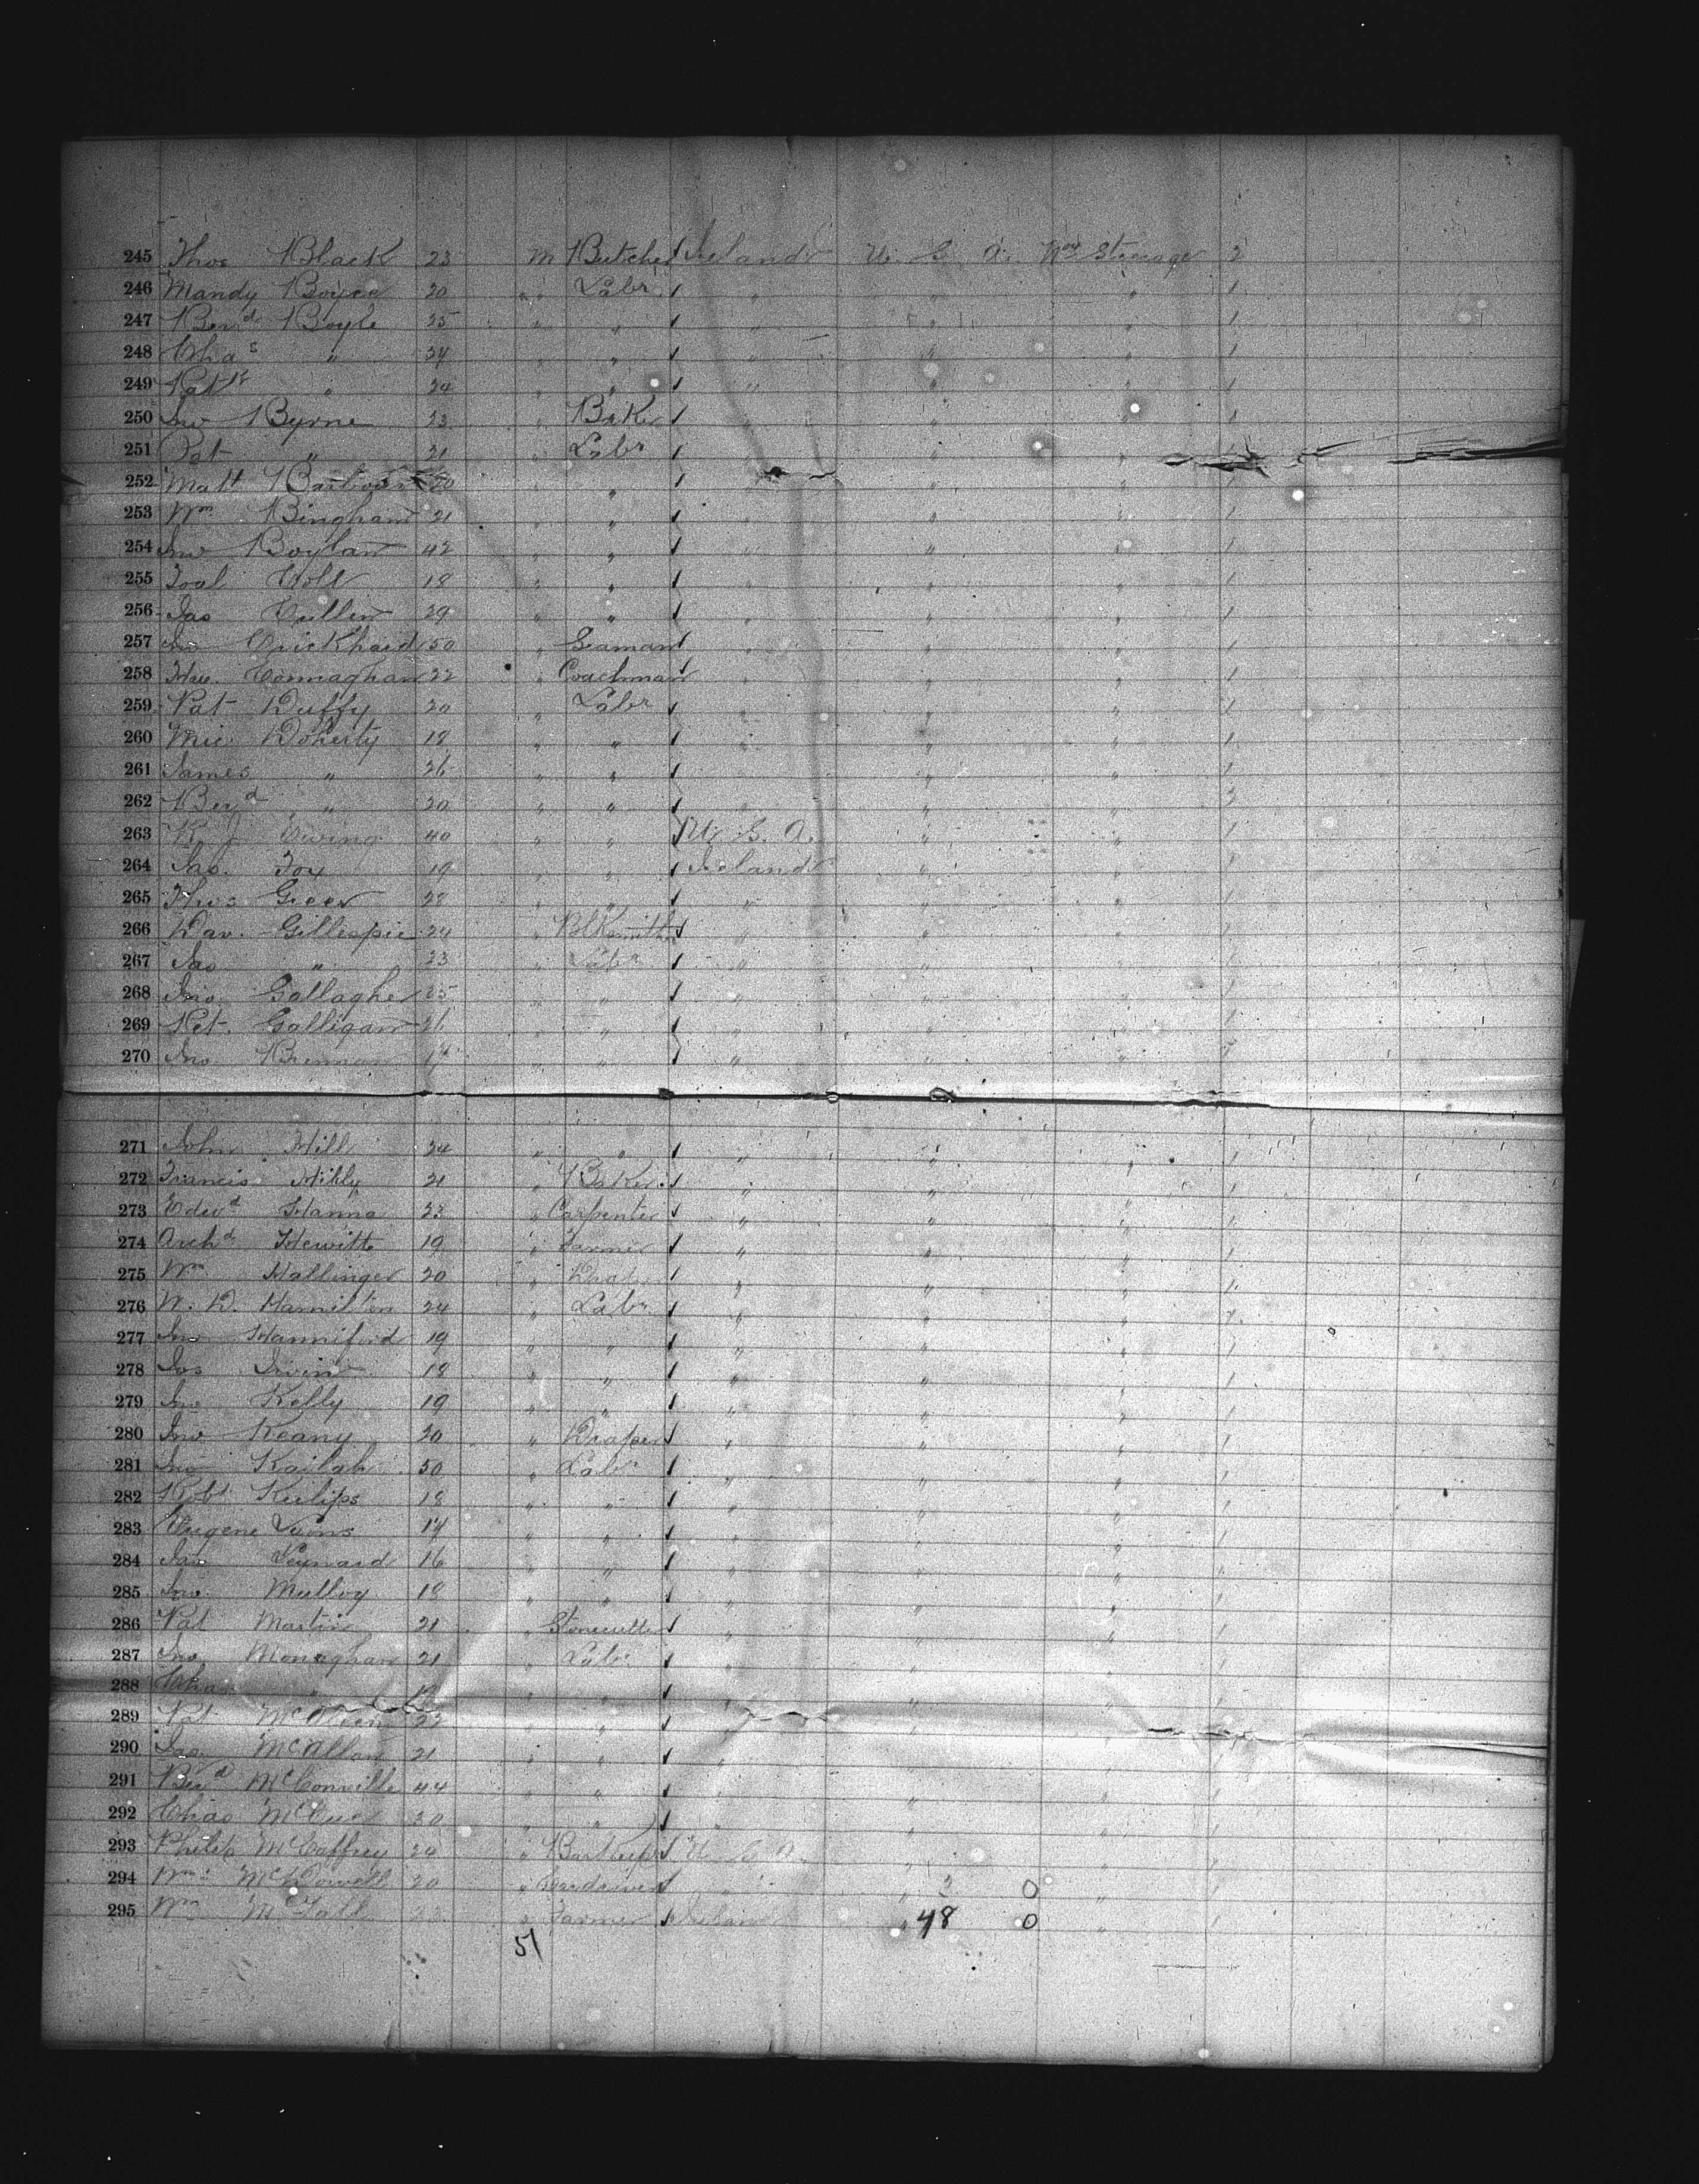 245 Thos Black 23 M Butcher Ireland U. S. A. Nos Steerage 2
246 Mandy Boyce 20 " Labr " " " 1
247 Bend Boyle 25 " " " " " 1
248 Chas " 34 " " " " " 1
249 Patk " 24 " " " " " 1
250 Jno Byrne 23 " Baker " " " 1
251 Pat " 21 " Labr " " " 1
252 Matt Barbour 20 " " " " " 1
253 Wm Bingham 21 " " " " " 1
254 Jno Boylan 42 " " " " " 1
255 Toal Coll 18 " " " " " 1
256 Jas Cullen 29 " " " " " 1
257 Jno Crickhard 50 " Seaman " " " 1
258 Connaghan 22 " Coachman " " " 1
259 Pat Duffy 20 " Labr " " " 1
260 Mic Doherty 18 " " " " " 1
261 James " 26 " " " " " 1
262 Bend " 20 " " " " " 3
263 R. J. Ewing 40 " " U. S. A. " " 1
264 Jas. Fox 19 " " Ireland " " 1
265 Thos Greer 28 " " " " " 1
266 Dav. Gillespie 24 " Blksmith " " " 1
267 Jas " 23 " Labr " " " 1
268 Jno. Gallagher 25 " " " " " 1
269 Pet. Galligan 26 " " " " " 1
270 Jno Brennan " " " " " 1
271 John Hill 34 " " " " " 1
272 Francis Hibly 21 " Baker " " " 1
273 Edwd Hanna 22 " Carpenter " " " 1
274 Archd Hewitt 19 " Farmer " " " 1
275 Wm Hallinger 20 " Draper " " " 1
276 W. D. Hamilton 24 " Labr " " " 1
277 Jno Hanniford 19 " " " " " 1
278 Jos Irvine 18 " " " " " 1
279 Jno Kelly 19 " " " " " 1
280 Jno Keany 20 " Draper " " " 1
281 Jno 50 " Labr " " " 1
282 Robt Keelips 18 " " " " " 1
283 Eugene Lyons 17 " " " " " 1
284 Jas Leynard 16 " " " " " 1
285 Jno. Mulloy 18 " " " " " 1
286 Pat Martin 21 " Stonecutter " " " 1
287 Jno Monaghan 21 " Labr " " " 1
288 Chas " " " " " " 1
289 Pat 23 " " " " " 1
290 McAllan 21 " " " " " 1
291 Bend McConville 44 " " " " " 1
292 Chas McCue 30 " " " " " 1
293 Philip McCaffrey 24 " Barkeeper U. S. A. " " 1
294 Wm McDowell 20 " " " 3 0 " 1
295 Wm " Farmer Ireland " 48 0 " 1
51